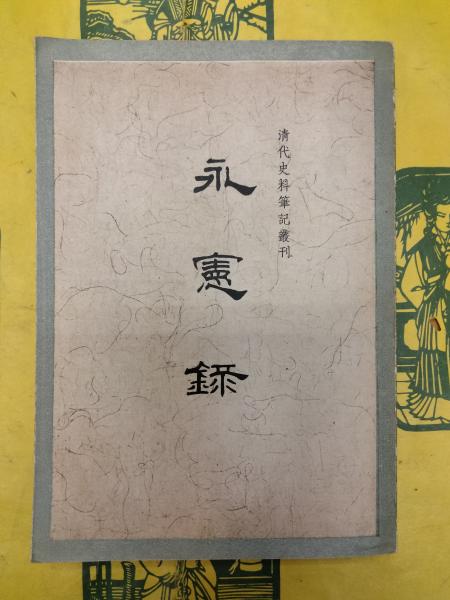 清代史料筆記叢刊
永憲録